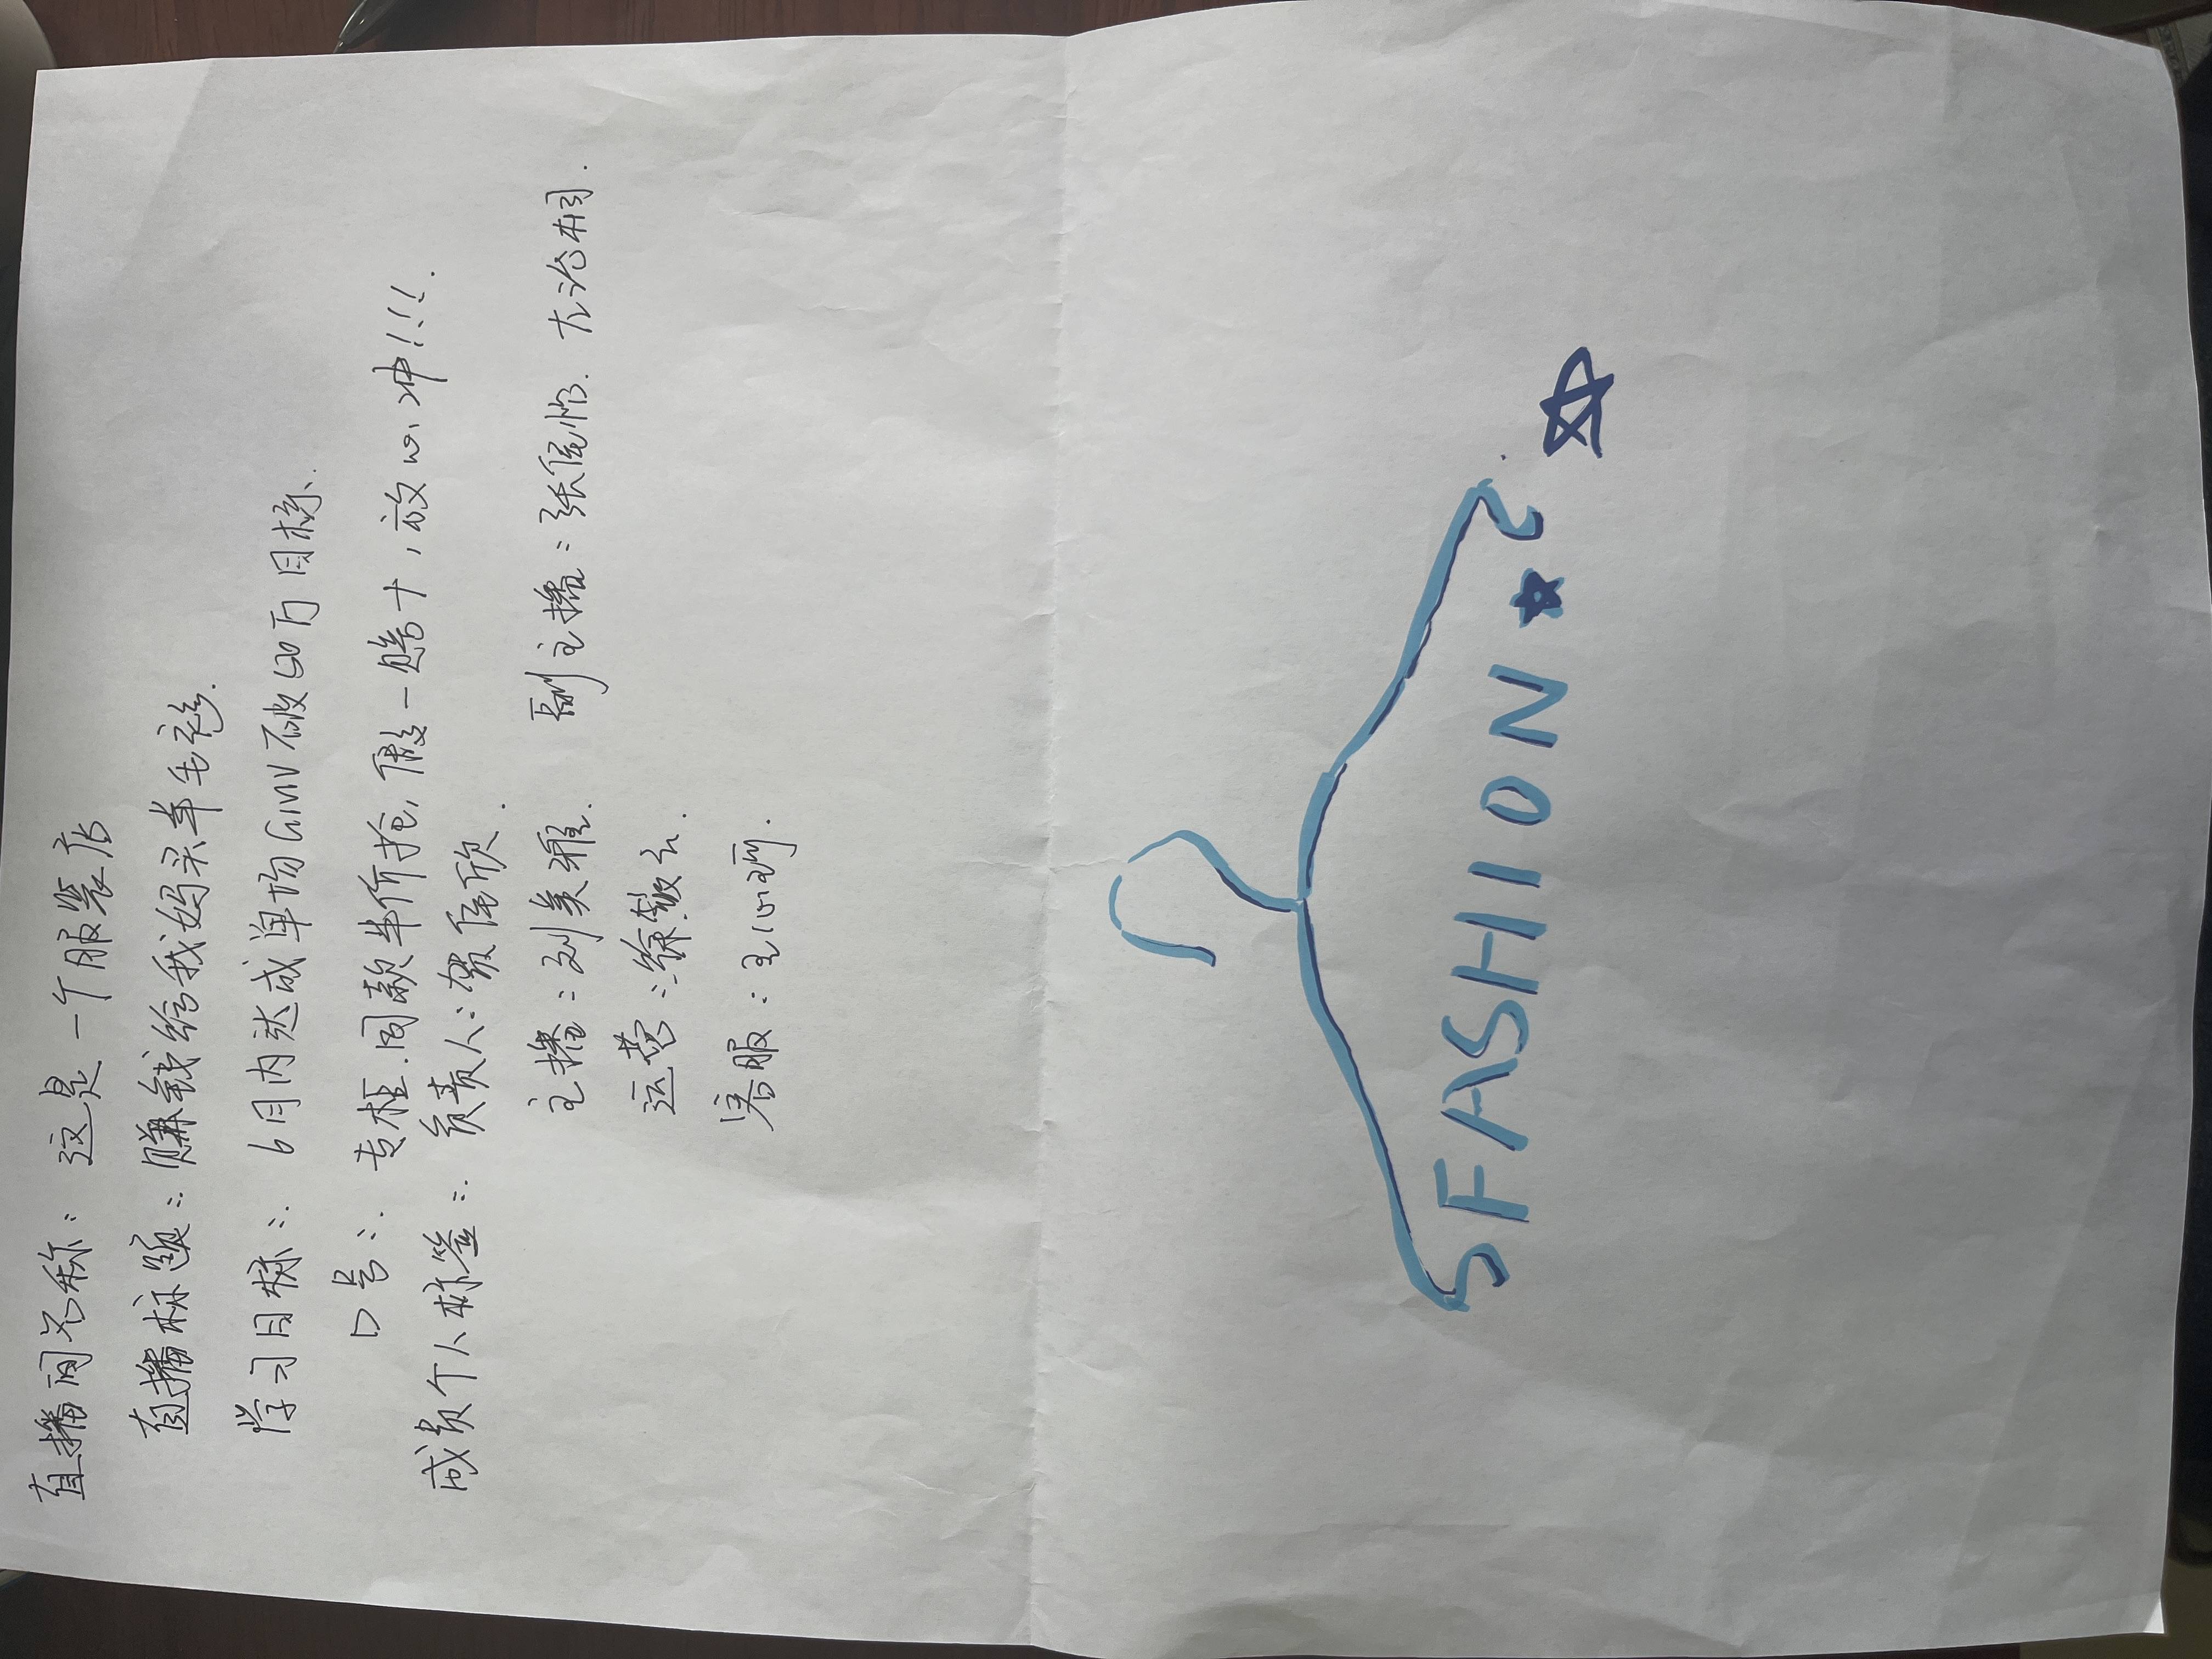 直播间名称：这是一个服装店
直播标题：赚钱给我妈买羊毛衫.
学习目标：6月内达成单场GMV 破 万目标、
口号：专柜同款半价抢，假一赔十，放心冲!!!.
成员个人标签：负责人：贺佳欣.
主播：刘美雅. 副主播：张佳怡. 尤治相.
运营：徐
客服：王心珂.
FASHION